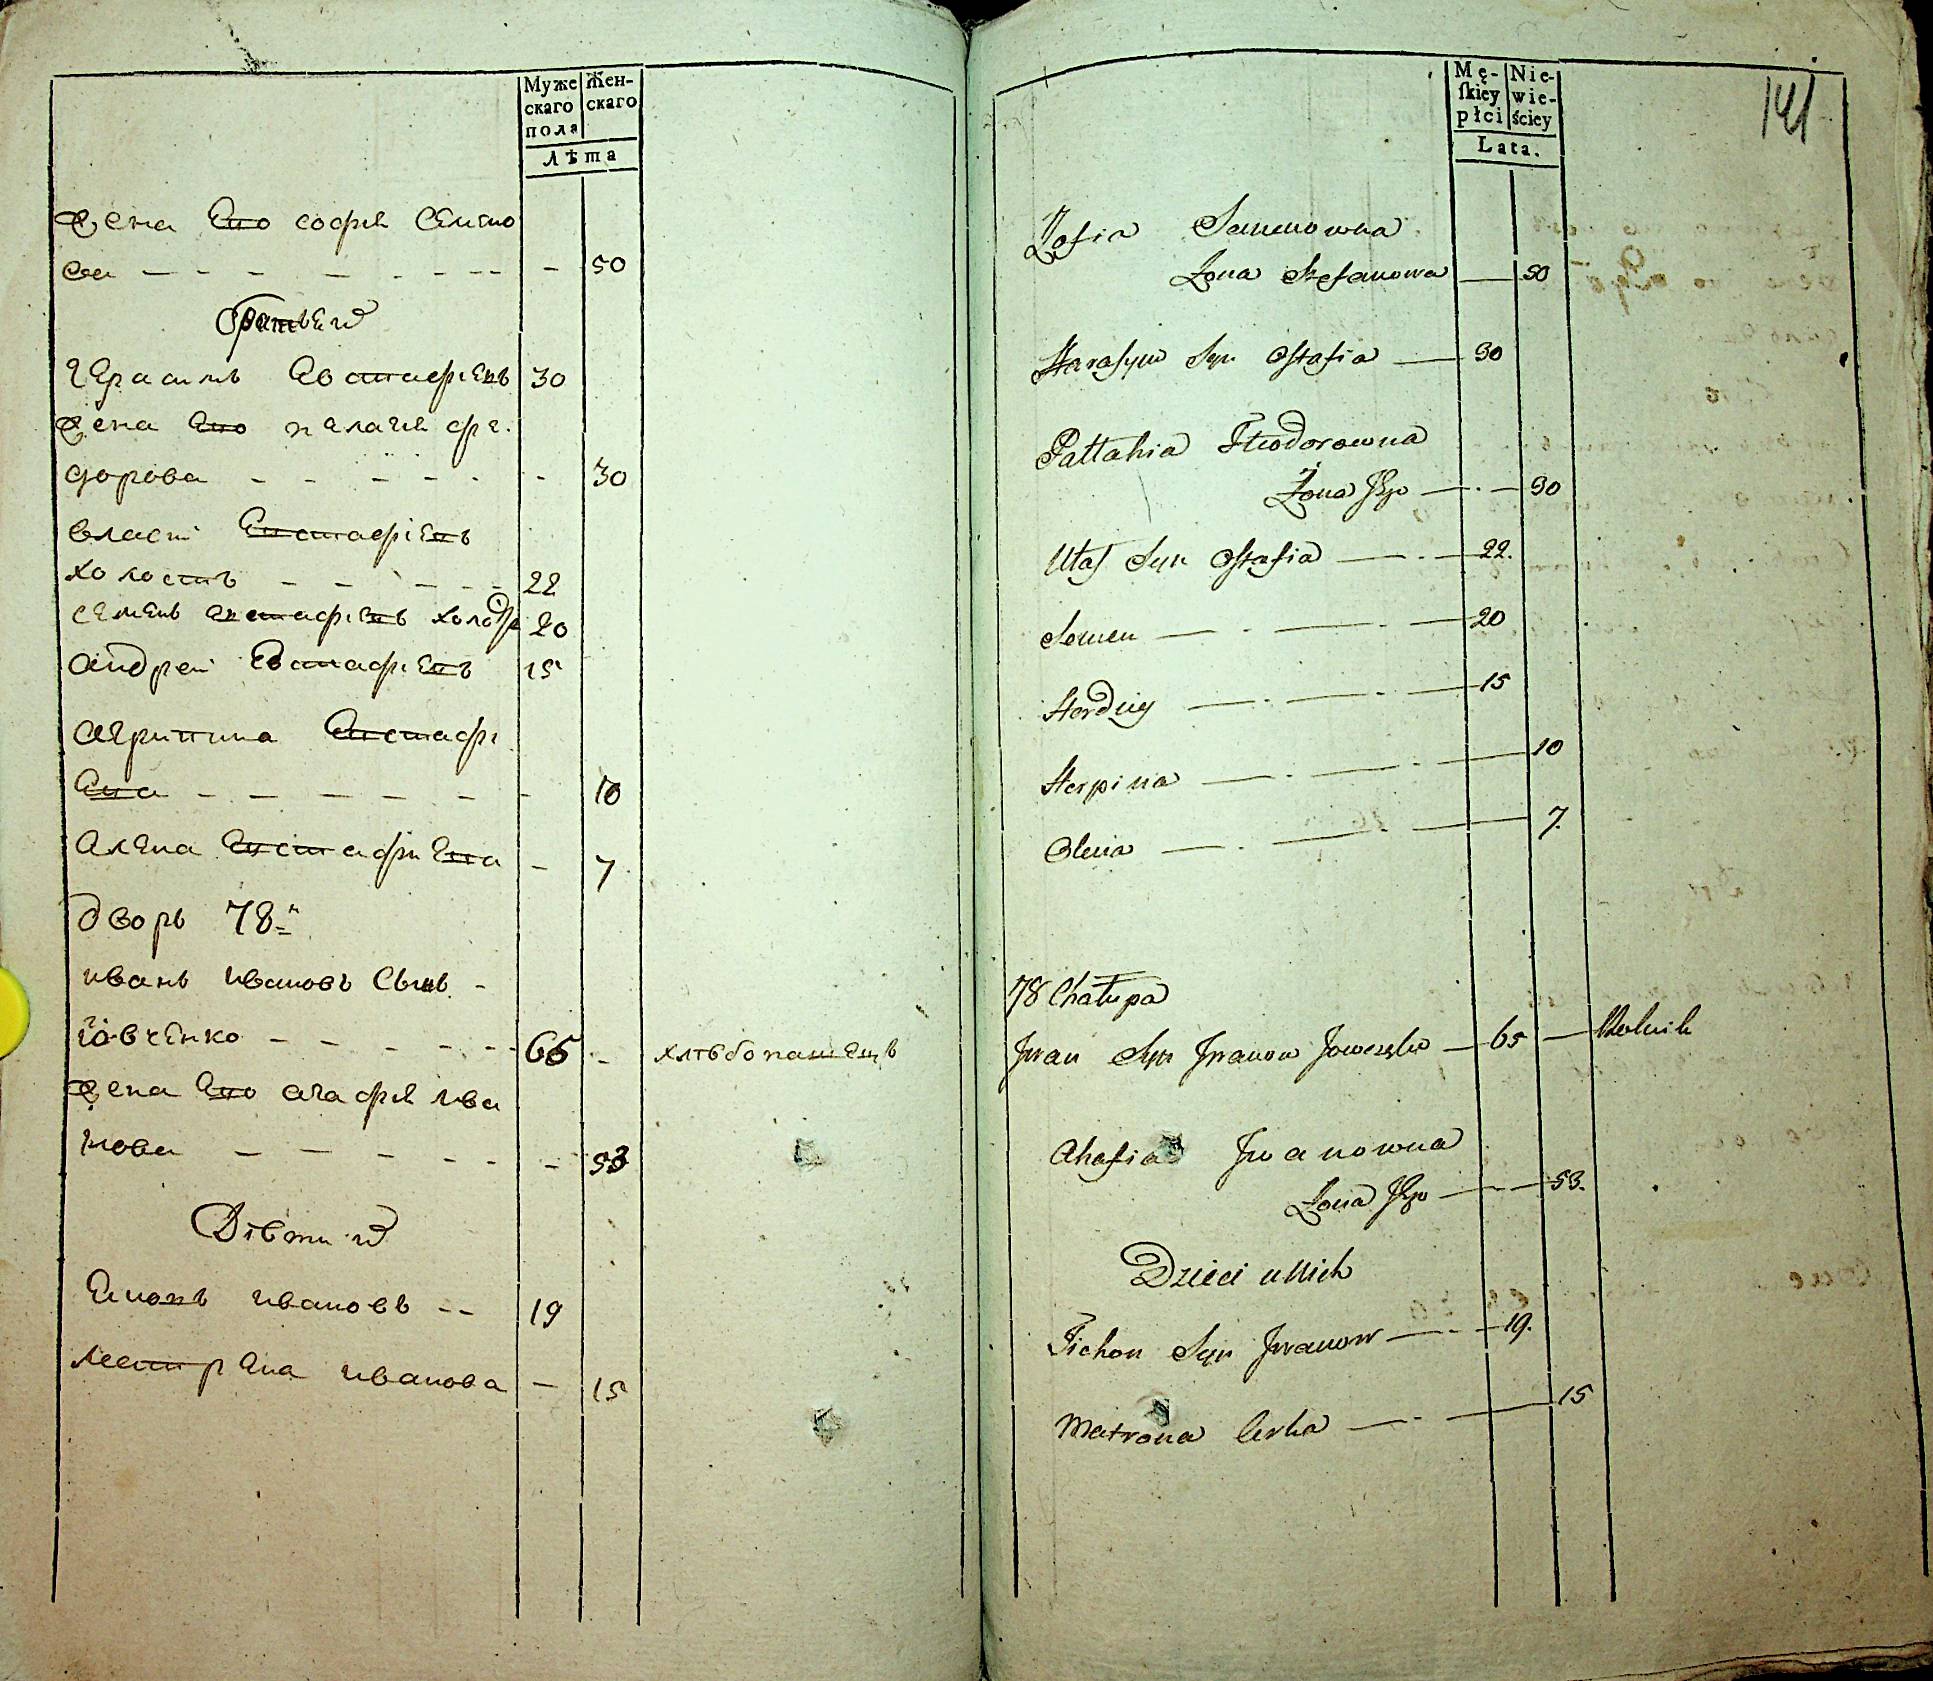 Муже
скаго
пола
Жен-
скаго
Лѣта
жена Его софия Семио
ва — 50
братъей
герасимъ Евстафіевъ 30
жена Его пелагия фе.
дорова — 30
власій Евстафіевъ
холостъ — 22
семенъ Евстафіевъ холо 20
андрей Евстафіевъ 15
агрипина Евстафі
Ева — 10
Алена Евстафиева — 7
дворъ 78-й
иванъ ивановъ Сынъ -
Іовченко — 65 — хлѣбопашецъ
жена Его агафия ива
нова — 53
Дѣти и
ивановъ -- 19
иванова — 15
Mę-
skiey
płci
Nie-
wie-
ściey
Lata.
141
Zofia Semenowna
Żona Stefanowa — 50
Harasym Syn Ostafia — 30
Pallahia Fteodorowna
Żona Jego — 30
Ułas Syn Ostafia — 22.
Semen — 20
Hordiey — 15
Herpina — 10
Olena — 7.
78 Chałupa
Jwan Syn Jwanow — 65 — Rolnik
Ahafia Jwanowna
Żona Jego — 53.
Dzieci u Nich
Tichon Syn Jwanow — 19.
Matrona Corka — 15